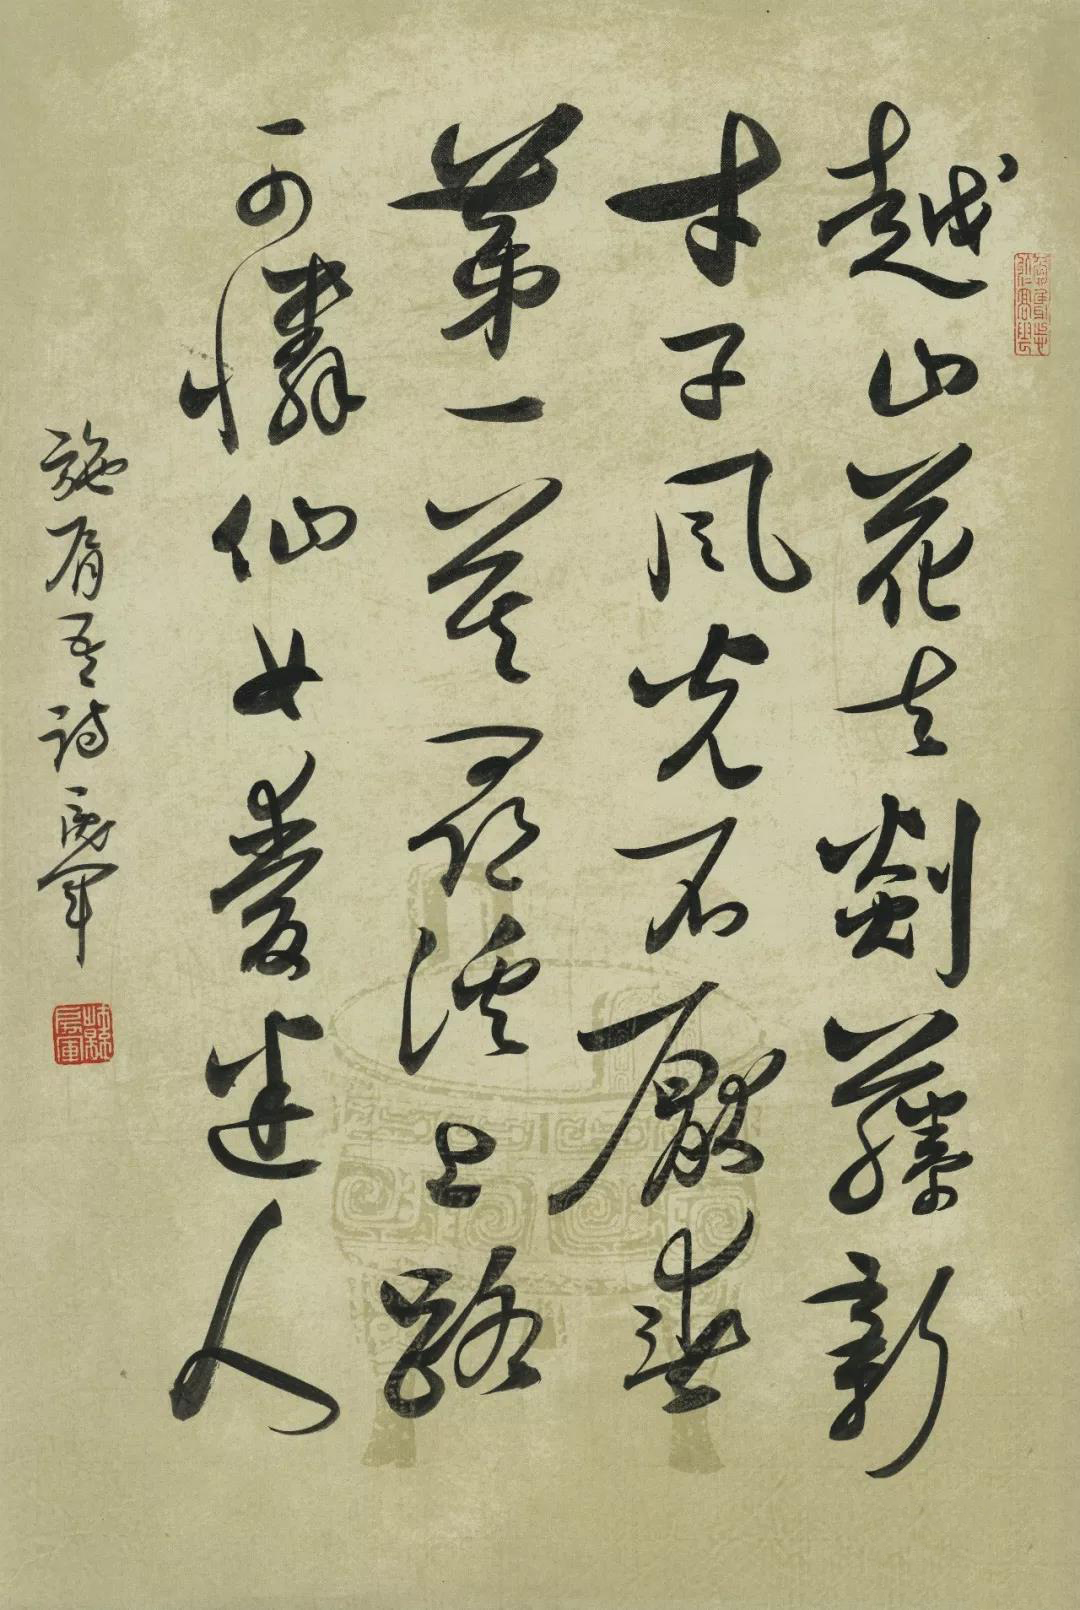 越山花去剡藤新
才子风光不厌春
第一莫寻溪上路
可怜仙女爱迷人
施肩吾诗